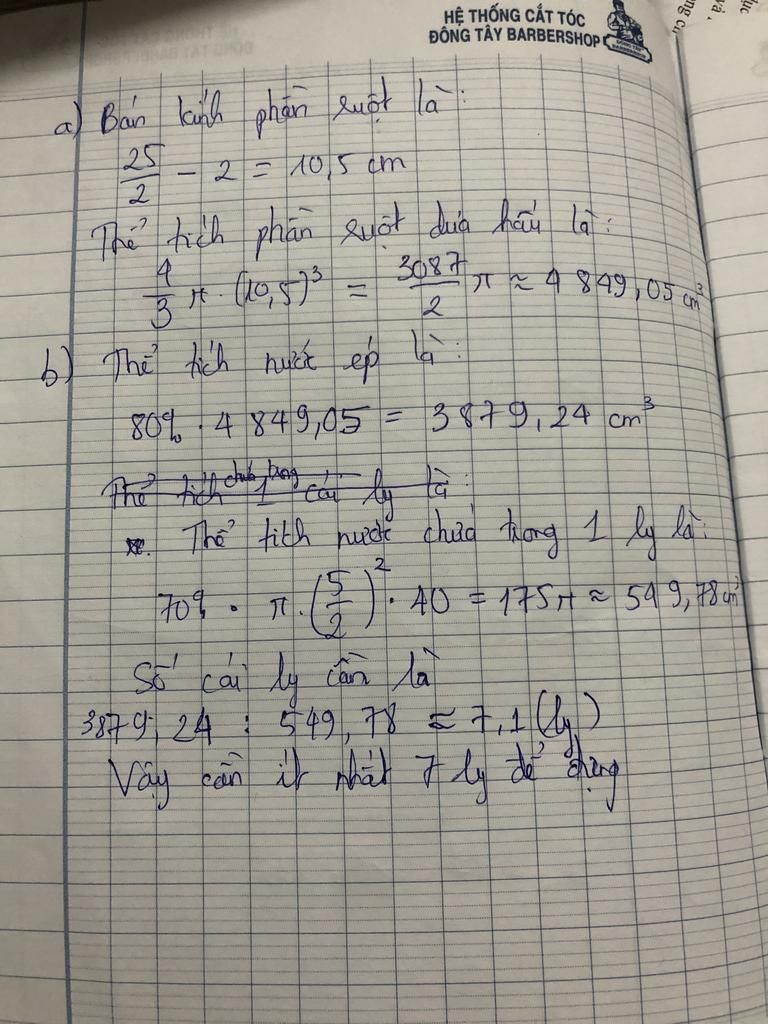 HỆ THỐNG CẮT TÓC
ĐÔNG TÂY BARBERSHOP
a) Bán kính phần ruột là:
25/2 - 2 = 10,5 cm
Thể tích phần ruột dưa hấu là:
4/3 π · (10,5)³ = 3087/2 π ≈ 4 849,05 cm³
b) Thể tích nước ép là:
80% · 4 849,05 = 3879,24 cm³
Thể tích chứa trong 1 cái ly là:
Thể tích nước chứa trong 1 ly là:
70% · π · (5/2)² · 40 = 175π ≈ 549,78 cm³
Số cái ly cần là
3879,24 : 549,78 ≈ 7,1 (ly)
Vậy cần ít nhất 7 ly để đựng